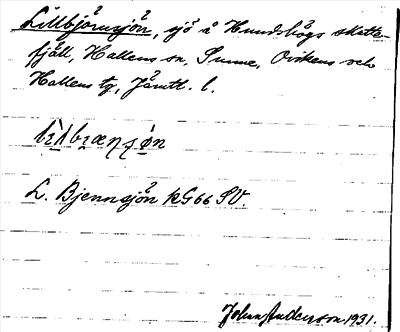 Lillbjörnsjön, sjö å Hundshögs skatte-
fjäll, Hallens sn, Sunne, Ovikens och
Hallens tg, Jämtl. l.
L. Bjennsjön KG66 SV.
John Anderson 1931.